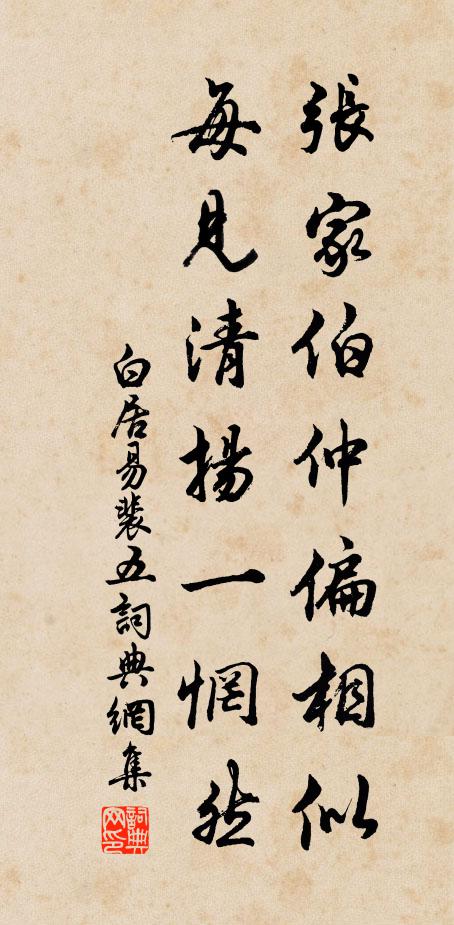 張家伯仲偏相似
每見清揚一惘然
白居易裴五詞典網集
詞典
网印